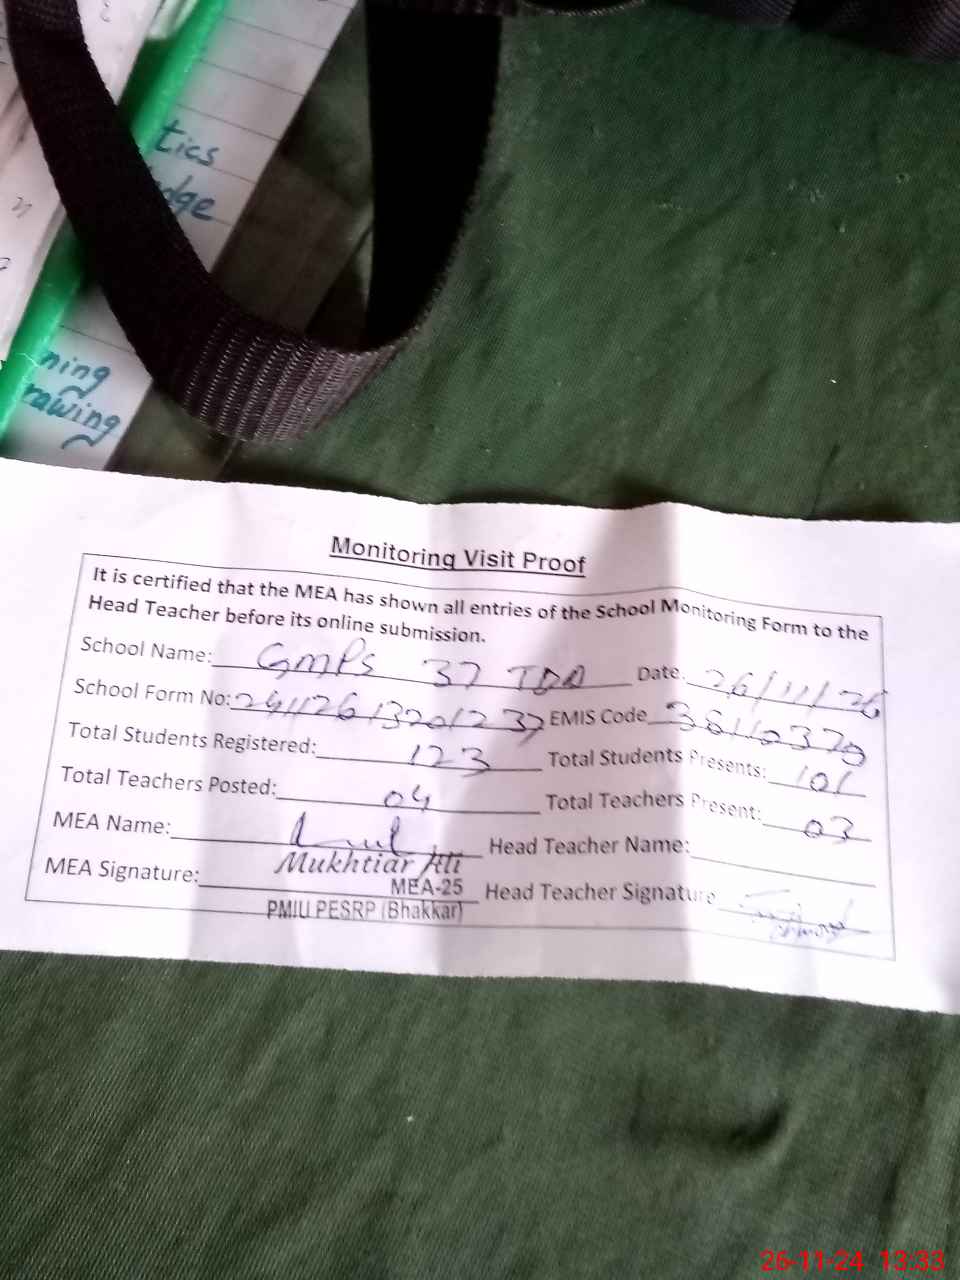 tics
dge
ning
rawing
Monitoring Visit Proof
It is certified that the MEA has shown all entries of the School Monitoring Form to the
Head Teacher before its online submission.
School Name: GMPS 37 TDA Date: 26/11/26
School Form No: EMIS Code 36110370
Total Students Registered: 123 Total Students Presents: 101
Total Teachers Posted: 04 Total Teachers Present: 03
MEA Name: Mukhtiar Ali Head Teacher Name:
MEA Signature: MEA-25 Head Teacher Signature
PMIU PESRP (Bhakkar)
26-11-24 13:33